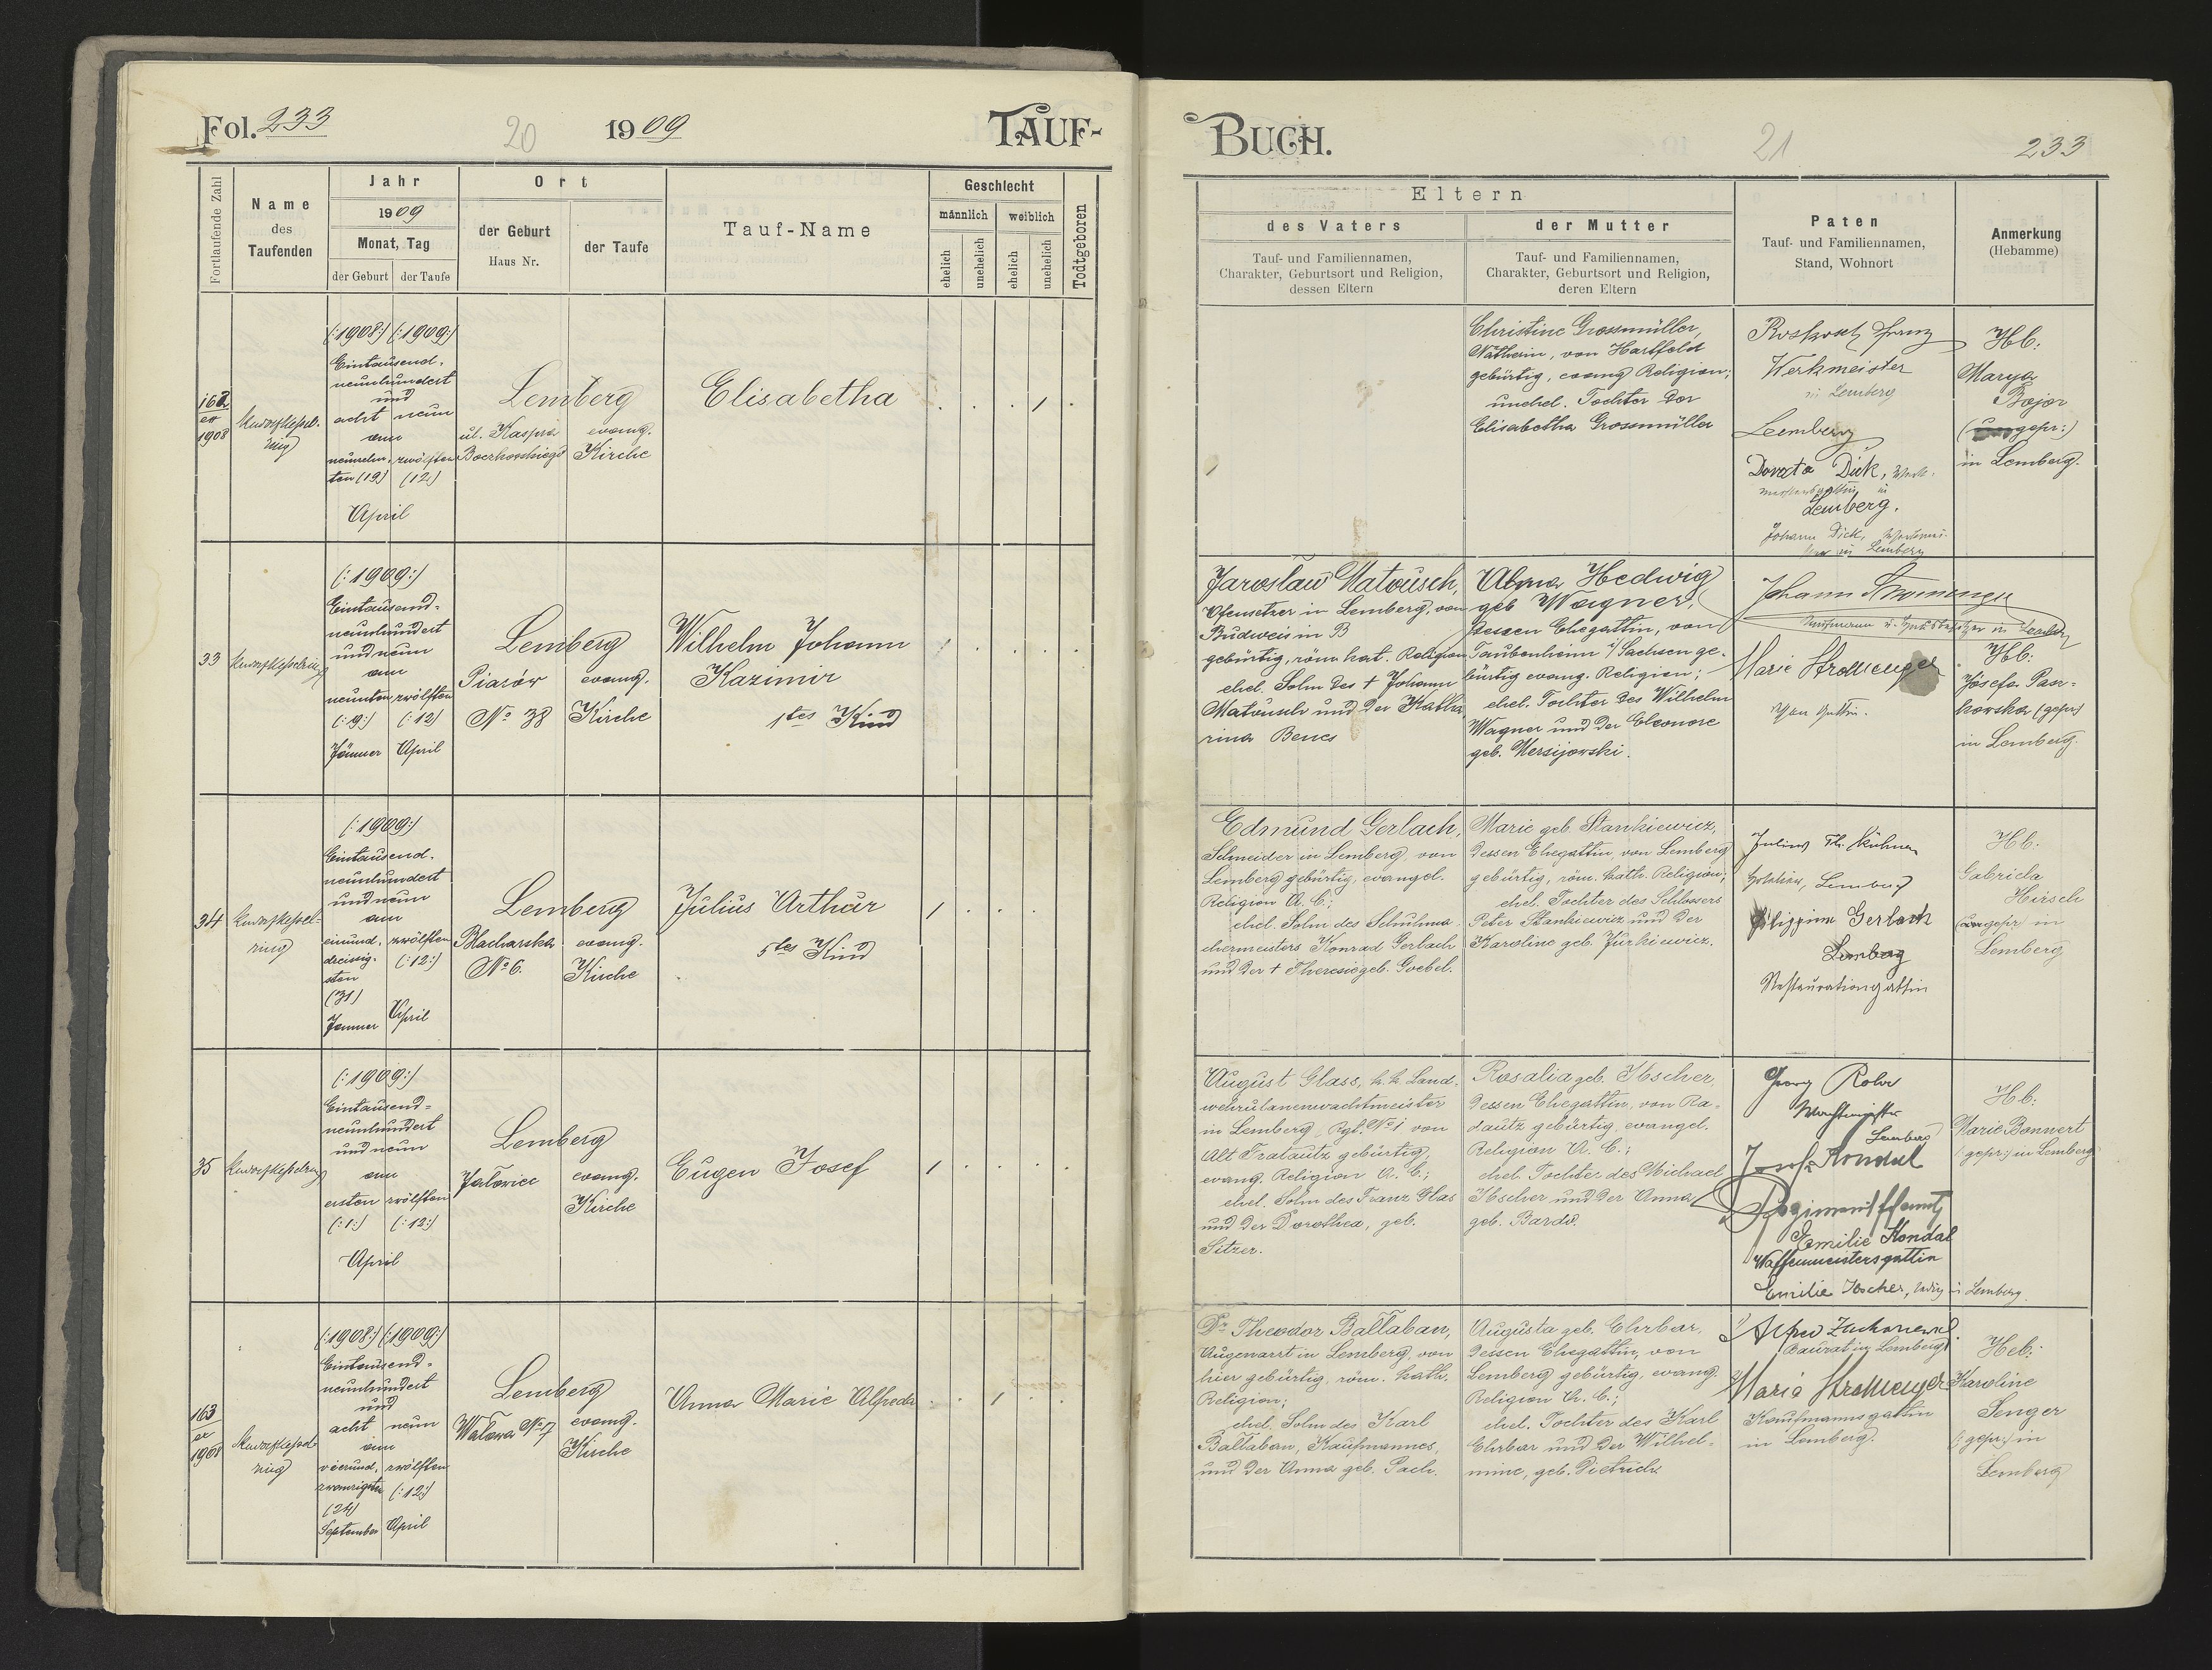 Fol. 233
20
1909
TAUF-
BUCH.
21
233
Fortlaufende Zahl
Name
des
Taufenden
Jahr
1909
Monat, Tag
der Geburt
der Taufe
Ort
der Geburt
Haus Nr.
der Taufe
Tauf-Name
Geschlecht
männlich
weiblich
ehelich
unehelich
ehelich
unehelich
Todtgeboren
Eltern
des Vaters
Tauf- und Familiennamen,
Charakter, Geburtsort und Religion,
dessen Eltern
der Mutter
Tauf- und Familiennamen,
Charakter, Geburtsort und Religion,
deren Eltern
Paten
Tauf- und Familiennamen,
Stand, Wohnort
Anmerkung
(Hebamme)
162
ex
1908
(:1908:) (:1909:)
Eintausend-
neunhundert
und
acht neun
am
neunzehn- zwölften
ten (19) (12.)
April
Lemberg
ul. Kaspra
Boczkowskiego
evang.
Kirche
Elisabetha
Christine Grossmüller,
Nätherin, von Hartfeld
gebürtig, evang Religion;
unehel. Tochter der
Elisabetha Grossmüller
Franz
Werkmeister
in Lemberg
Lemberg
Dick,
in
Lemberg.
Johann Dick,
in Lemberg
Hb:
Marya
Bojor
gepr:)
in Lemberg.
33
(:1909:)
Eintausend-
neunhundert
und neun
am
neunten zwölften
(:9:) (:12)
Jänner April
Lemberg
Piasków
No 38
evang.
Kirche
Wilhelm Johann
Kazimir
1tes Kind
Jaroslaw Matousch,
Ofensetzer in Lemberg, von
Budweis in B
gebürtig, röm. kat. Religion
ehel. Sohn des † Johann
Matousch und der Katha-
rina Benes
Hedwig
geb Wagner,
dessen Ehegattin, von
Taubenheim i/Sachsen ge-
bürtig evang. Religion;
ehel. Tochter des Wilhelm
Wagner und der Eleonore
geb. Mersijowski.
Johann Stromenger
Kaufmann u. Hausbesitzer in Lemberg
Marie Stromenger
Hb:
Józefa Pasz-
kowska (gepr)
in Lemberg.
34
(:1909:)
Eintausend-
neunhundert
und neun
am
einund- zwölften
dreissig- (:12:)
sten
(31)
Jänner April
Lemberg
Blacharska
No 6.
evang.
Kirche
Julius Arthur
5tes Kind
Edmund Gerlach,
Schneider in Lemberg, von
Lemberg gebürtig, evangel.
Religion A. C.;
ehel. Sohn des Schuhma-
chermeisters Konrad Gerlach
und der † Theresie geb. Goebel.
Marie geb. Stankiewicz,
dessen Ehegattin, von Lemberg
gebürtig, röm. kath. Religion;
ehel. Tochter des Schlossers
Peter Stankiewicz und der
Karoline geb. Jurkiewicz.
Julius Th. Kühner
Lemberg
Filippine Gerlach
Lemberg
Hb.
Gabriela
Hirsch
in
Lemberg
35
(:1909:)
Eintausend-
neunhundert
und neun
am
ersten zwölften
(:1:) (:12:)
April
Lemberg
Jałowiec
evang.
Kirche
Eugen Josef
August Glass, k.k. Land-
wehrulanenwachtmeister
in Lemberg Rgt. No 1 von
Alt Fratautz gebürtig,
evang. Religion A. C.;
ehel. Sohn des Franz Glas
und der Dorothea, geb.
Sitzer.
Rosalia geb. Ibscher,
dessen Ehegattin, von Ra-
dautz gebürtig, evangel.
Religion A. C.;
ehel. Tochter des Michael
Ibscher und der Anna
geb. Bardo.
Georg Rohr
Wachtmeister
Lemberg
Josef Kondal
Emilie Kondal
Waffenmeistersgattin
Emilie Ibscher, ledig in Lemberg.
Hb:
Marie Bonnert
(gepr:) in Lemberg
163
ex
1908
(:1908:) (:1909:)
Eintausend-
neunhundert
und
acht neun
am
vierund- zwölften
zwanzigsten (:12:)
(24)
September April
Lemberg
Wałowa No 7
evang.
Kirche
Anna Marie Alfreda
Dr Theodor Ballaban,
Augenarzt in Lemberg, von
hier gebürtig, röm. kath.
Religion;
ehel. Sohn des Karl
Ballaban, Kaufmannes,
und der Anna geb. Pach.
Augusta geb. Ehrbar,
dessen Ehegattin, von
Lemberg gebürtig, evang.
Religion A. C.;
ehel. Tochter des Karl
Ehrbar und der Wilhel-
mine, geb. Dietrich.
Baurat in Lemberg
Maria Stromenger
Kaufmannsgattin
in Lemberg.
Heb:
Karoline
Senger
(:gepr:) in
Lemberg